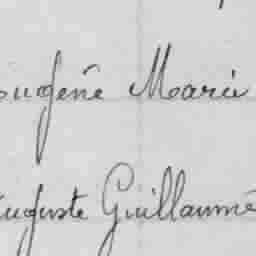 Eugène Marie
Auguste Guillaume